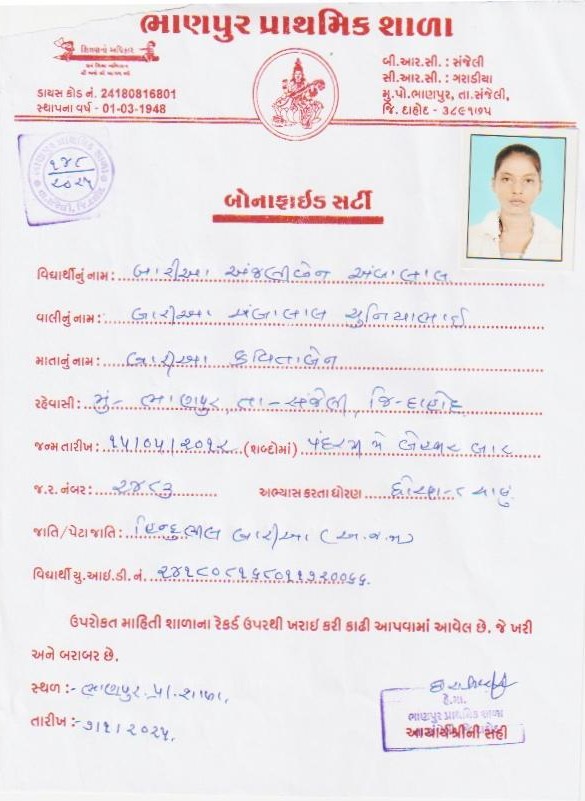 ભાણપુર પ્રાથમિક શાળા
શિક્ષણનો અધિકાર
સર્વ શિક્ષા અભિયાન
ડાયસ કોડ નં. 24180816801
સ્થાપના વર્ષ - 01-03-1948
બી.આર.સી. : સંજેલી
સી.આર.સી. : ગરાડીયા
મુ.પો.ભાણપુર, તા.સંજેલી,
જિ. દાહોદ - ૩૮૯૧૭૫
૧૪૮
૨૦૨૫
બોનાફાઈડ સર્ટી
વિદ્યાર્થીનું નામ : બારીઆ અંજલીબેન અંબાલાલ
વાલીનું નામ : બારીઆ અંબાલાલ ચુનિયાભાઈ
માતાનું નામ : બારીઆ કવિતાબેન
રહેવાસી : મું- ભાણપુર, તા-સંજેલી, જિ-દાહોદ
જન્મ તારીખ : ૧૫/૦૫/૨૦૧૨ (શબ્દોમાં) પંદર મે બેહજાર બાર
જ.ર. નંબર : ૨૪૮૩ અભ્યાસ કરતા ધોરણ ધોરણ-૮ ચાલું
જાતિ/પેટા જાતિ : હિન્દુ ભીલ બારીઆ (અ.જ.જ)
વિદ્યાર્થી યુ.આઈ.ડી. નં.
ઉપરોકત માહિતી શાળાના રેકર્ડ ઉપરથી ખરાઇ કરી કાઢી આપવામાં આવેલ છે. જે ખરી
અને બરાબર છે.
સ્થળ :- ભાણપુર. પ્રા. શાળા.
તારીખ :- ૭/૧/૨૦૨૫.
ભાણપુર પ્રાથમિક શાળા
આચાર્યશ્રીની સહી